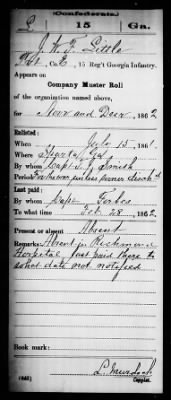 (Confederate.)
L 15 Ga.
J. W. T. Little
Pvt, Co. E, 15 Reg't Georgia Infantry.
Appears on
Company Muster Roll
of the organization named above,
for Novr and Decr, 1862
Enlisted:
When July 15, 1861.
Where Sparta, Ga.
By whom Capt. Smith
Period For the war unless sooner
Last paid:
By whom Capt. Forbes
To what time Oct 28, 1862.
Present or absent Absent
Remarks: Absent in Richmond
Hospital last paid there to
what date not notified
Book mark:
L. Murdoch
(642) Copyist.